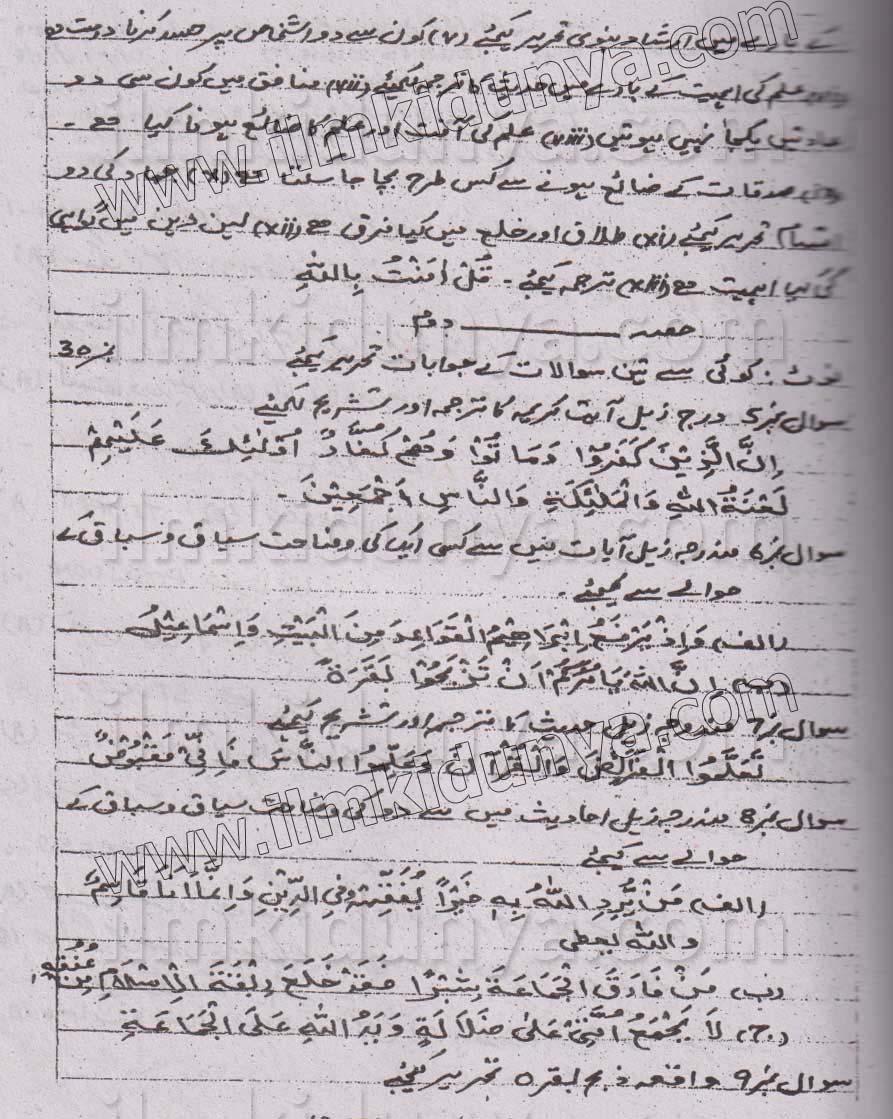 کے بارے میں ارشاد نبوی تحریر کیجئے (v) کون سے دو اشخاص پر حسد کرنا درست ہے
علم کی اہمیت کے بارے میں حدیث کا ترجمہ لکھئے (vii) منافق میں کون سی دو
عادتیں یکجا نہیں ہوتیں (viii) علم کی آفت اور علم کا ضائع ہونا کیا ہے -
صدقات کے ضائع ہونے سے کس طرح بچا جا سکتا ہے (x) جہاد کی دو
اقسام تحریر کیجئے (xi) طلاق اور خلع میں کیا فرق ہے (xii) لین دین میں گواہی
کی کیا اہمیت ہے (xiii) ترجمہ کیجئے - قُلْ اٰمَنْتُ بِاللّٰهِ
حصہ ـــــــــ دوم
نوٹ: کوئی سے تین سوالات کے جوابات تحریر کیجئے نمبر 30
سوال نمبر 5 درج ذیل آیت کریمہ کا ترجمہ اور تشریح لکھئے
اِنَّ الَّذِيْنَ كَفَرُوْا وَمَاتُوْا وَهُمْ كُفَّارٌ اُولٰٓئِكَ عَلَيْهِمْ
لَعْنَةُ اللّٰهِ وَالْمَلٰٓئِكَةِ وَالنَّاسِ اَجْمَعِيْنَ -
سوال نمبر 6 مندرجہ ذیل آیات میں سے کسی ایک کی وضاحت سیاق و سباق کے
حوالے سے کیجئے -
(الف) وَاِذْ يَرْفَعُ اِبْرَاهِيْمُ الْقَوَاعِدَ مِنَ الْبَيْتِ وَاِسْمَاعِيْلُ
(ب) اِنَّ اللّٰهَ يَاْمُرُكُمْ اَنْ تَذْبَحُوْا بَقَرَةً
سوال نمبر 7 مندرجہ ذیل حدیث کا ترجمہ اور تشریح کیجئے
تَعَلَّمُوا الْفَرَائِضَ وَالْقُرْاٰنَ وَعَلِّمُوا النَّاسَ فَاِنِّيْ مَقْبُوْضٌ
سوال نمبر 8 مندرجہ ذیل احادیث میں سے دو کی وضاحت سیاق و سباق کے
حوالے سے کیجئے
(الف) مَنْ يُّرِدِ اللّٰهُ بِهٖ خَيْرًا يُفَقِّهْهُ فِي الدِّيْنِ وَاِنَّمَا اَنَا قَاسِمٌ
واللہ یعطی
(ب) مَنْ فَارَقَ الْجَمَاعَةَ شِبْرًا فَقَدْ خَلَعَ رِبْقَةَ الْاِسْلَامِ مِنْ عُنُقِهٖ
(ج) لَا يَجْمَعُ اُمَّتِيْ عَلٰى ضَلَالَةٍ وَيَدُ اللّٰهِ عَلَى الْجَمَاعَةِ
سوال نمبر 9 واقعہ ذبح بقرہ تحریر کیجئے
www.ilmkidunya.com
ilmkidunya.com
ilmkidunya.com
ilmkidunya.com
www.ilmkidunya.com
ilmkidunya.com